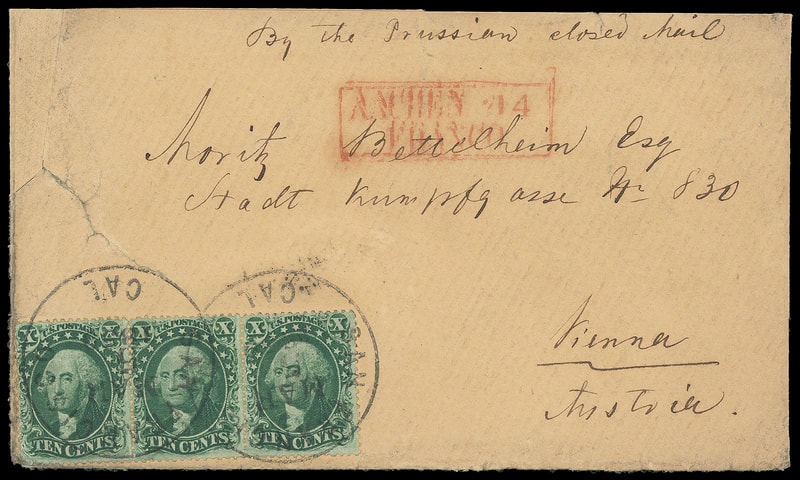 By the Prussian closed Mail
AACHEN 14
FRANCO
Moritz Bettelheim Esq
Stadt Kumpfgasse Nr 830
Vienna
Austria.
CAL
CAL
SAN
X U.S. POSTAGE X
X U.S. POSTAGE X
X U.S. POSTAGE X
TEN CENTS
TEN CENTS
TEN CENTS